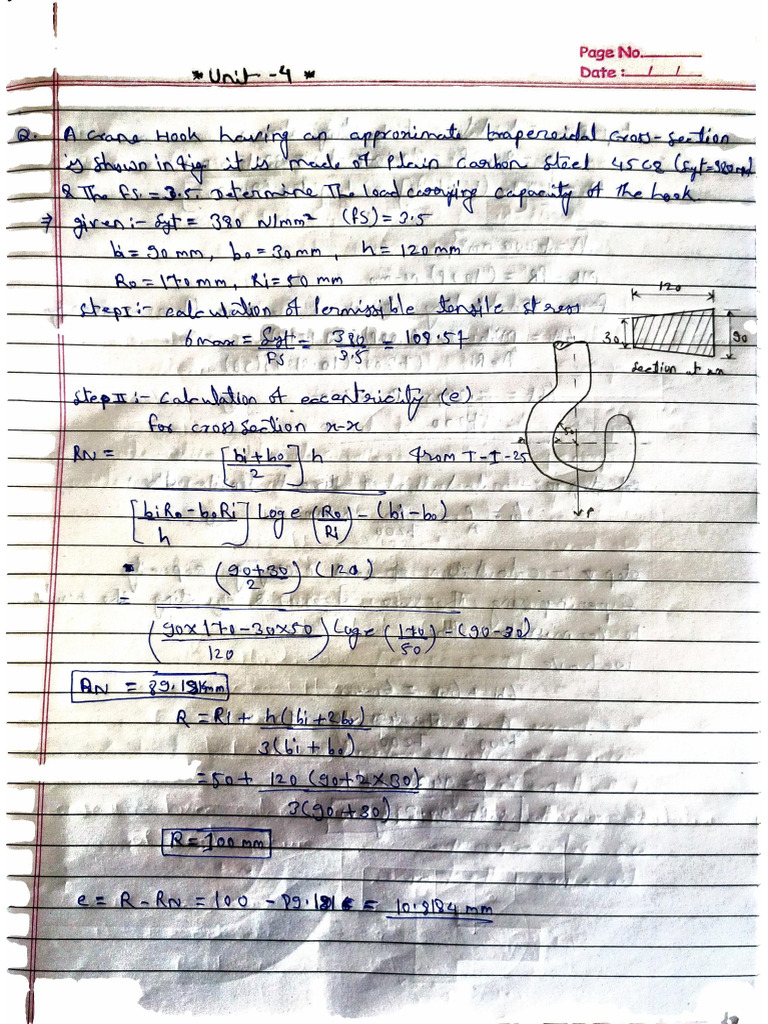 Page No.
Date : / /
* Unit - 4 *
Q. A crane Hook having an approximate trapezoidal cross-section
is shown in fig it is made of Plain carbon steel 45C8 (Syt=380
& The fs. = 3.5. Determine The load carrying capacity of the hook.
⇒ given:- Syt = 380 N/mm² (fs) = 3.5
bi = 90 mm, bo = 30 mm, h = 120 mm
Ro = 170 mm, Ri = 50 mm
Step I :- calculation of Permissible tensile stress
σmax = Syt/FS = 380/3.5 = 108.57
120
30
90
Section at xx
Step II :- Calculation of eccentricity (e)
for cross section x-x
50
P
RN = [bi + bo / 2] h from T-I-25
[biRo - boRi / h] Log e (Ro / Ri) - (bi - bo)
(90+30 / 2) (120)
=
(90×170-30×50 / 120) Log e (170 / 50) - (90-30)
RN = 89.181 mm
R = Ri + h(bi+2bo)
3(bi + bo)
= 50 + 120 (90+2×30)
3(90+30)
R = 100 mm
e = R - RN = 100 - 89.1816 = 10.8184 mm